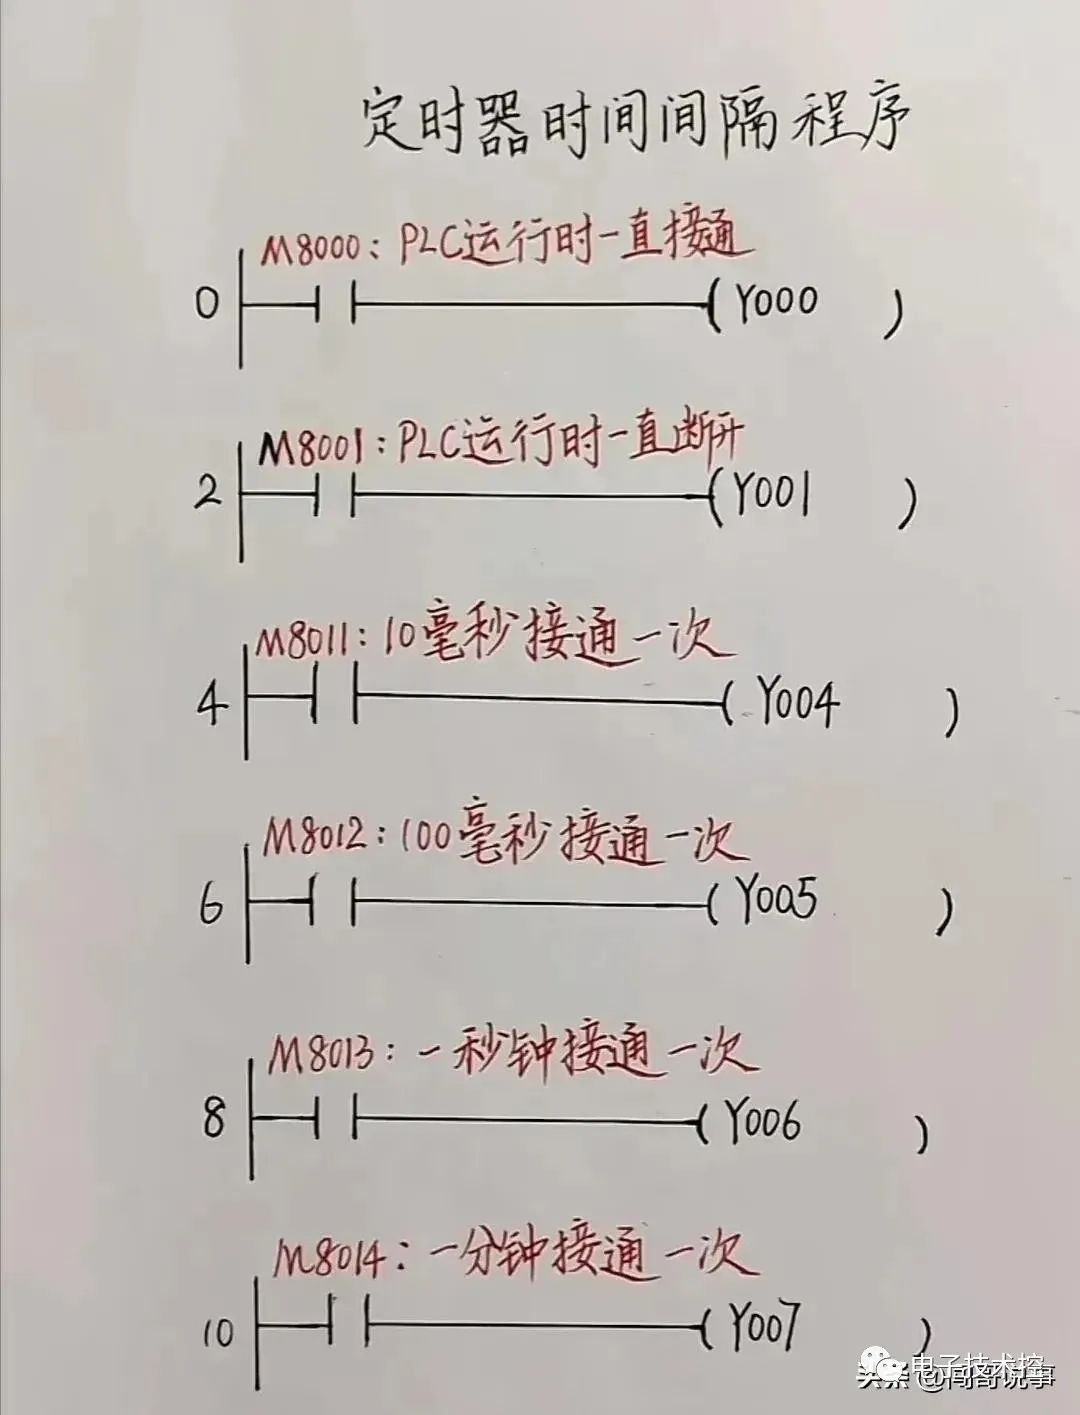 定时器时间间隔程序
M8000:PLC运行时一直接通
0 (Y000 )
M8001:PLC运行时一直断开
2 (Y001 )
M8011:10毫秒接通一次
4 (Y004 )
M8012:100毫秒接通一次
6 (Y005 )
M8013:一秒钟接通一次
8 (Y006 )
M8014:一分钟接通一次
10 (Y007 )
电子技术控
头条 @闫哥说事